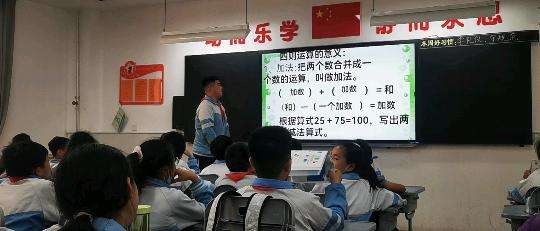 动而乐学
静而求思
本周好习惯:
四则运算的意义:
加法:把两个数合并成一
个数的运算,叫做加法。
( 加数 ) + ( 加数 ) = 和
(和) — (一个加数 ) = 加数
根据算式25+75=100,写出两
减法算式。